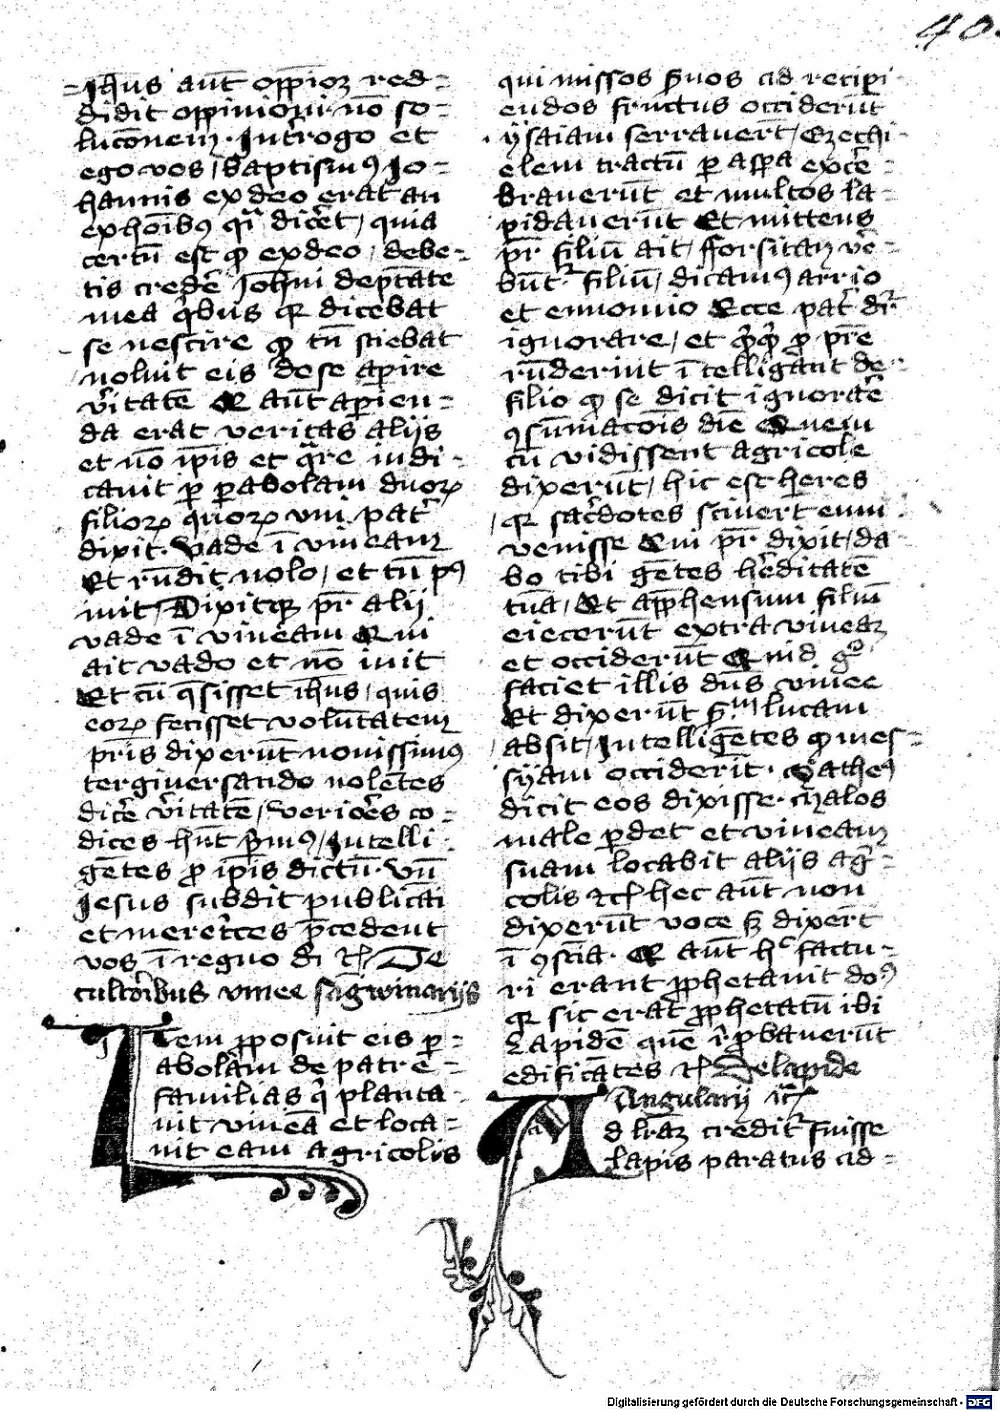 40.
Ih̄us aūt opp̄ioꝫ red=
didit oppinionū nō so=
lucōneɱ. Int̄rogo et
ego vos / baptismꝰ Jo=
hannis ex deo erat an
ex hōibꝰ qͥ dicēt / quia
certū est qͦ ex deo / debe=
tis credē Joh̄ni deptāte
mea q̄bus qꝛ dicebat
se nescire qͦ tn̄ sciebat
noluit eis de se aꝑire
v̄itatē Qꝛ aūt aꝑien=
da erat veritas aliis
et nō ip̄is et qͣre iudi=
cauit ꝑ ꝑabolam duoꝝ
filioꝝ quoꝝ vni pat̄
dixit. Vade ī vineam
Et rn̄dit nolo / et tn̄ pꝰ
iuit / Dixitqꝫ pr̄ alij
vade ī vineam Qui
ait vado et nō iuit
Et cū q̄sisset ih̄us / quis
eoꝝ fecisset volūtatem
pr̄is dixerūt nouissimꝰ
tergiuersando nolētes
dicē v̄itatē / Verioēs co=
dices hn̄t p̄mꝰ / Intelli=
gētes ꝓ ip̄is dictū. Vn̄
Jesus subdit publicāi
et meret̄ces p̄cedent
vos ī regno di ⁊cͭ De
cultōibus vinee
Item ꝓposuit eis ꝑ=
abolam de patre
familias qͥ planta=
uit vineā et loca=
uit eam agricolis
qui missos s̄uos ad recipi=
endos fructus occiderūt
ysaiam serrauerūt / Ezechi=
elem tractū ꝑ asp̄a excē=
brauerūt et multos la=
pidauerūt Et mittens
pr̄ filiū ait / fforsitan vē=
būt᷑ filiū / dicamꝰ arrio
et eunomio Ecce pat̄ d̄r
ignorare / et qͥcqͥd ꝓ pr̄e
rn̄derint ītelligant de=
filio qͦ se dicit ignorāe
ꝯsūmacōis diē Quem
cū vidissent agricole
dixerūt / hic est heres
qꝛ sac̄dotes sciuert eum
venisse Cui pr̄ dixit / da=
bo tibi gētes h̄editatē
tuā / Et app̄hensum filiū
eiecerūt extra vineaꝫ
et occiderūt Quid gͦ
faciet illis dn̄s vinee
Et dixerūt sͫ lucam
absit / Intelligētes qͦ mes=
syam occiderīt. Matheꝰ
dicit eos dixisse. Malos
male ꝑdet et vineam
suam locabit aliis agͥ=
colis ⁊cͭ hec aūt non
dixerūt voce sꝫ dixert
ī ꝯsciā. Qꝛ aūt hͦ factu=
ri erant ꝓphetauit
qꝛ sic erat ꝓphetatū ibi
Lapidē quē rͥ̄ꝓbauerūt
edificātes ⁊cͭ De lapide
Angularij
Ad lr̄aꝫ credit᷑ fuisse
lapis paratus ad=
Digitalisierung gefördert durch die Deutsche Forschungsgemeinschaft - DFG